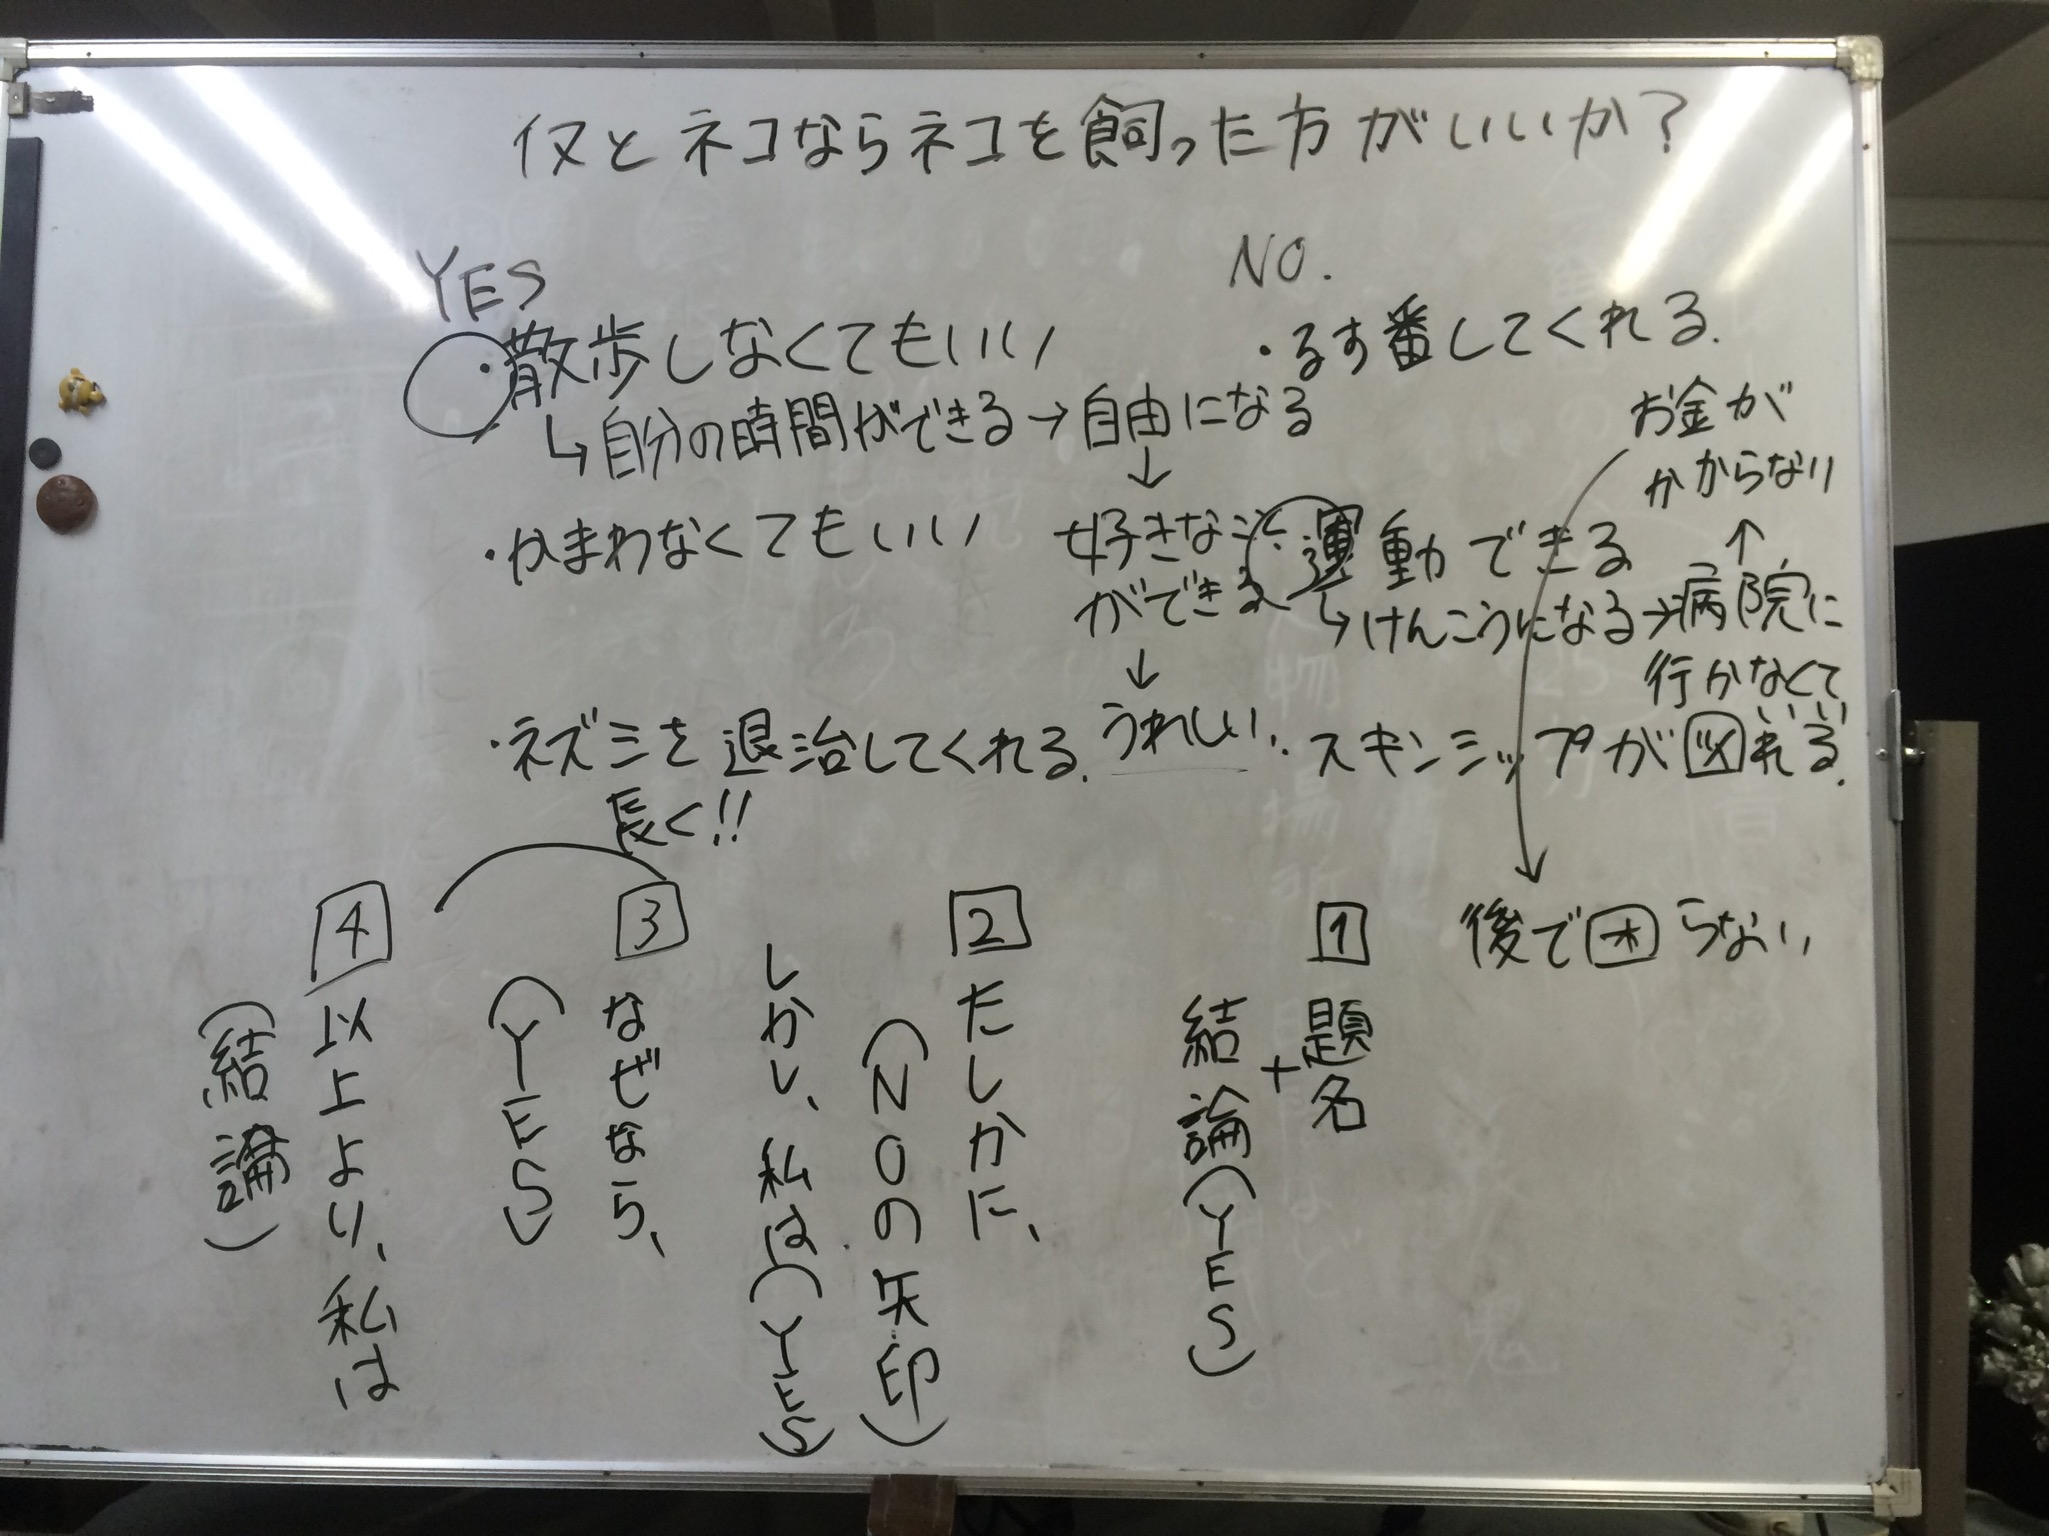 イヌとネコならネコを飼った方がいいか?
YES
・散歩しなくてもいい
↳自分の時間ができる→自由になる
↓
好きなこと
ができる
↓
うれしい
・かまわなくてもいい
・ネズミを退治してくれる.
NO.
・るす番してくれる.
・運動できる
↳けんこうになる→病院に
行かなくて
いい
↑
お金が
かからない
後で困らない
・スキンシップが図れる.
1 題名
+
結論(YES)
2 たしかに、
(NOの矢印)
しかし、私は(YES)
長く!!
3 なぜなら、
(YES)
4 以上より、私は
(結論)